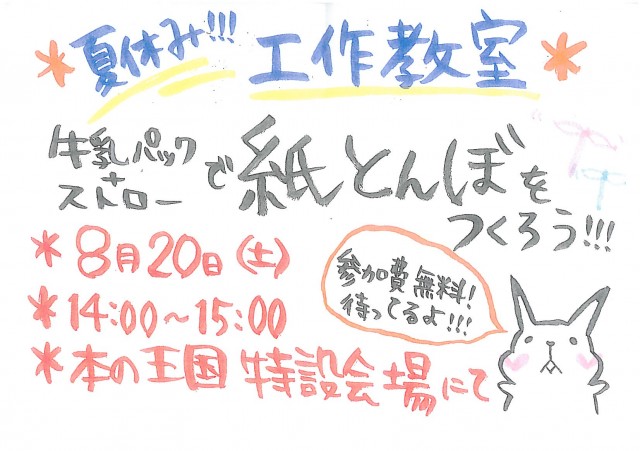 夏休み!!! 工作教室
牛乳パック
+
ストロー
で紙とんぼを
つくろう!!!
*8月20日(土)
*14:00~15:00
*本の王国 特設会場にて
参加費無料!
待ってるよ!!!